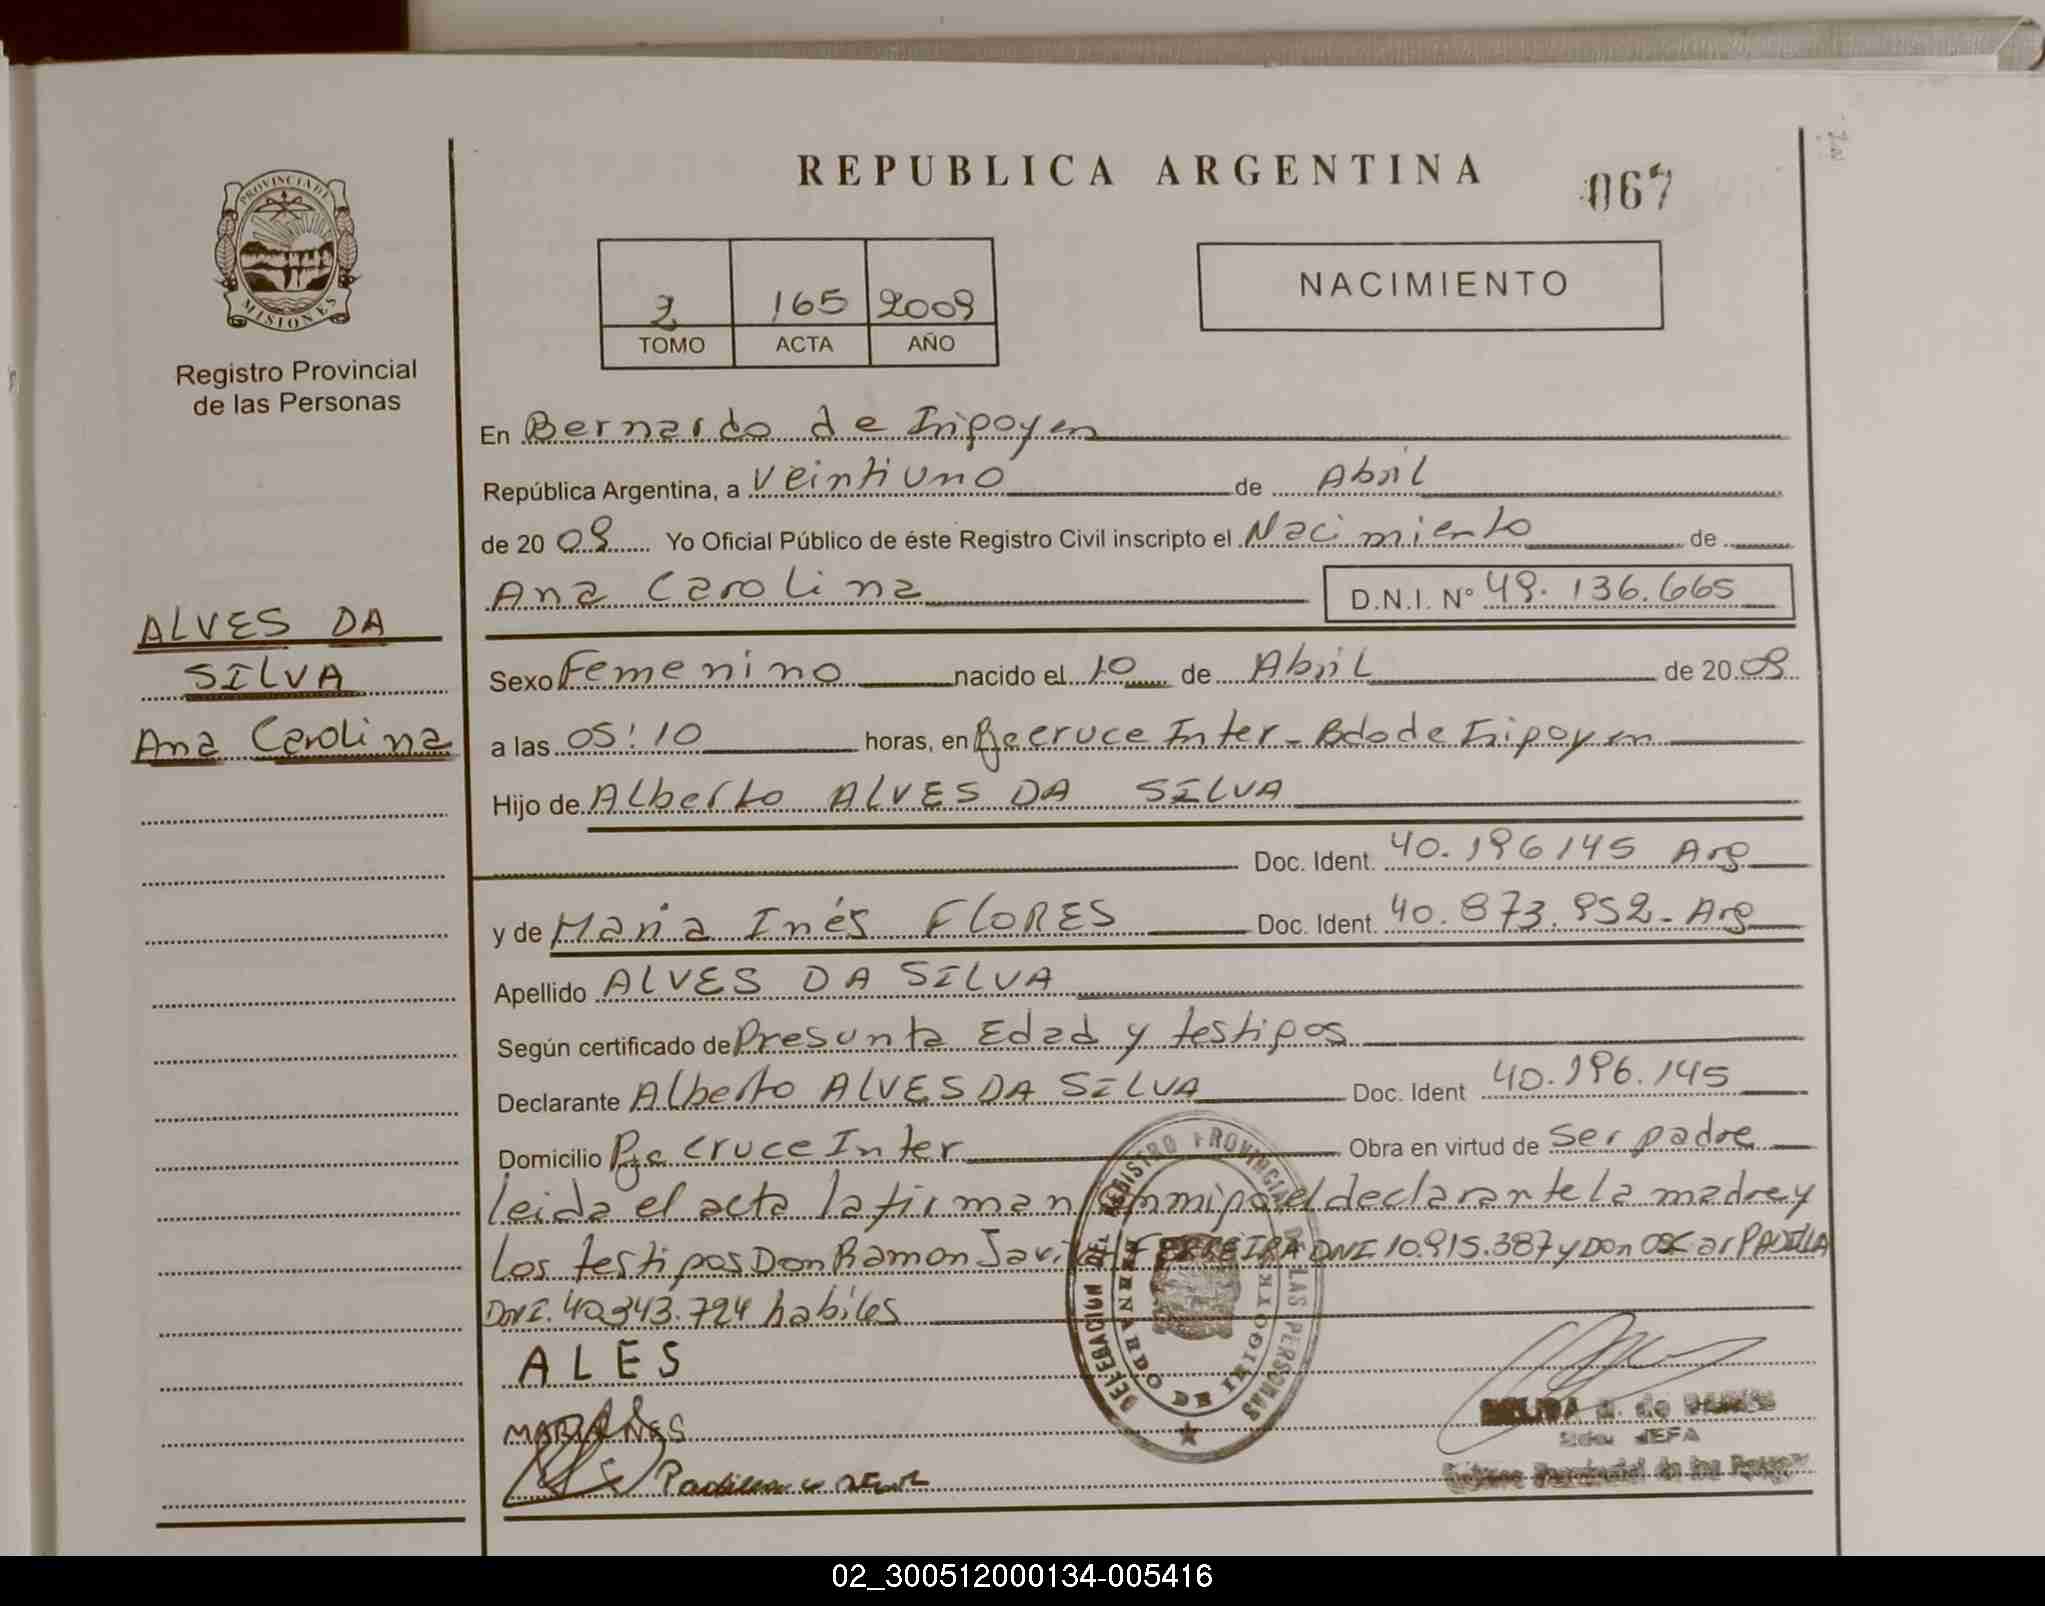 REPUBLICA ARGENTINA
067
PROVINCIA DE
MISIONES
Registro Provincial
de las Personas
2 165 2009
TOMO ACTA AÑO
NACIMIENTO
En Bernardo de Irigoyen
República Argentina, a Veintiuno de Abril
de 20 09 Yo Oficial Público de éste Registro Civil inscripto el Nacimiento de
Ana Carolina D.N.I. N° 49.136.665
ALVES DA
SILVA
Ana Carolina
Sexo Femenino nacido el 10 de Abril de 20 09
a las 05:10 horas, en Pje cruce Inter - Bdo de Irigoyen
Hijo de Alberto ALVES DA SILVA
Doc. Ident. 40.196145 Arg
y de Maria Inés FLORES Doc. Ident. 40.873.952 - Arg
Apellido ALVES DA SILVA
Según certificado de Presunta Edad y testigos
Declarante Alberto ALVES DA SILVA Doc. Ident 40.196.145
Domicilio Pje cruce Inter Obra en virtud de ser padre
leida el acta la firman conmigo el declarante la madre y
los testigos Don Ramon Javier FERREIRA DNI 10.915.387 y Don Oscar PADILLA
DNI. 40343.724 habiles
DELEGACION DEL REGISTRO PROVINCIAL DE LAS PERSONAS
BERNARDO DE IRIGOYEN
ALES
MARIA NES
JEFA
02_300512000134-005416